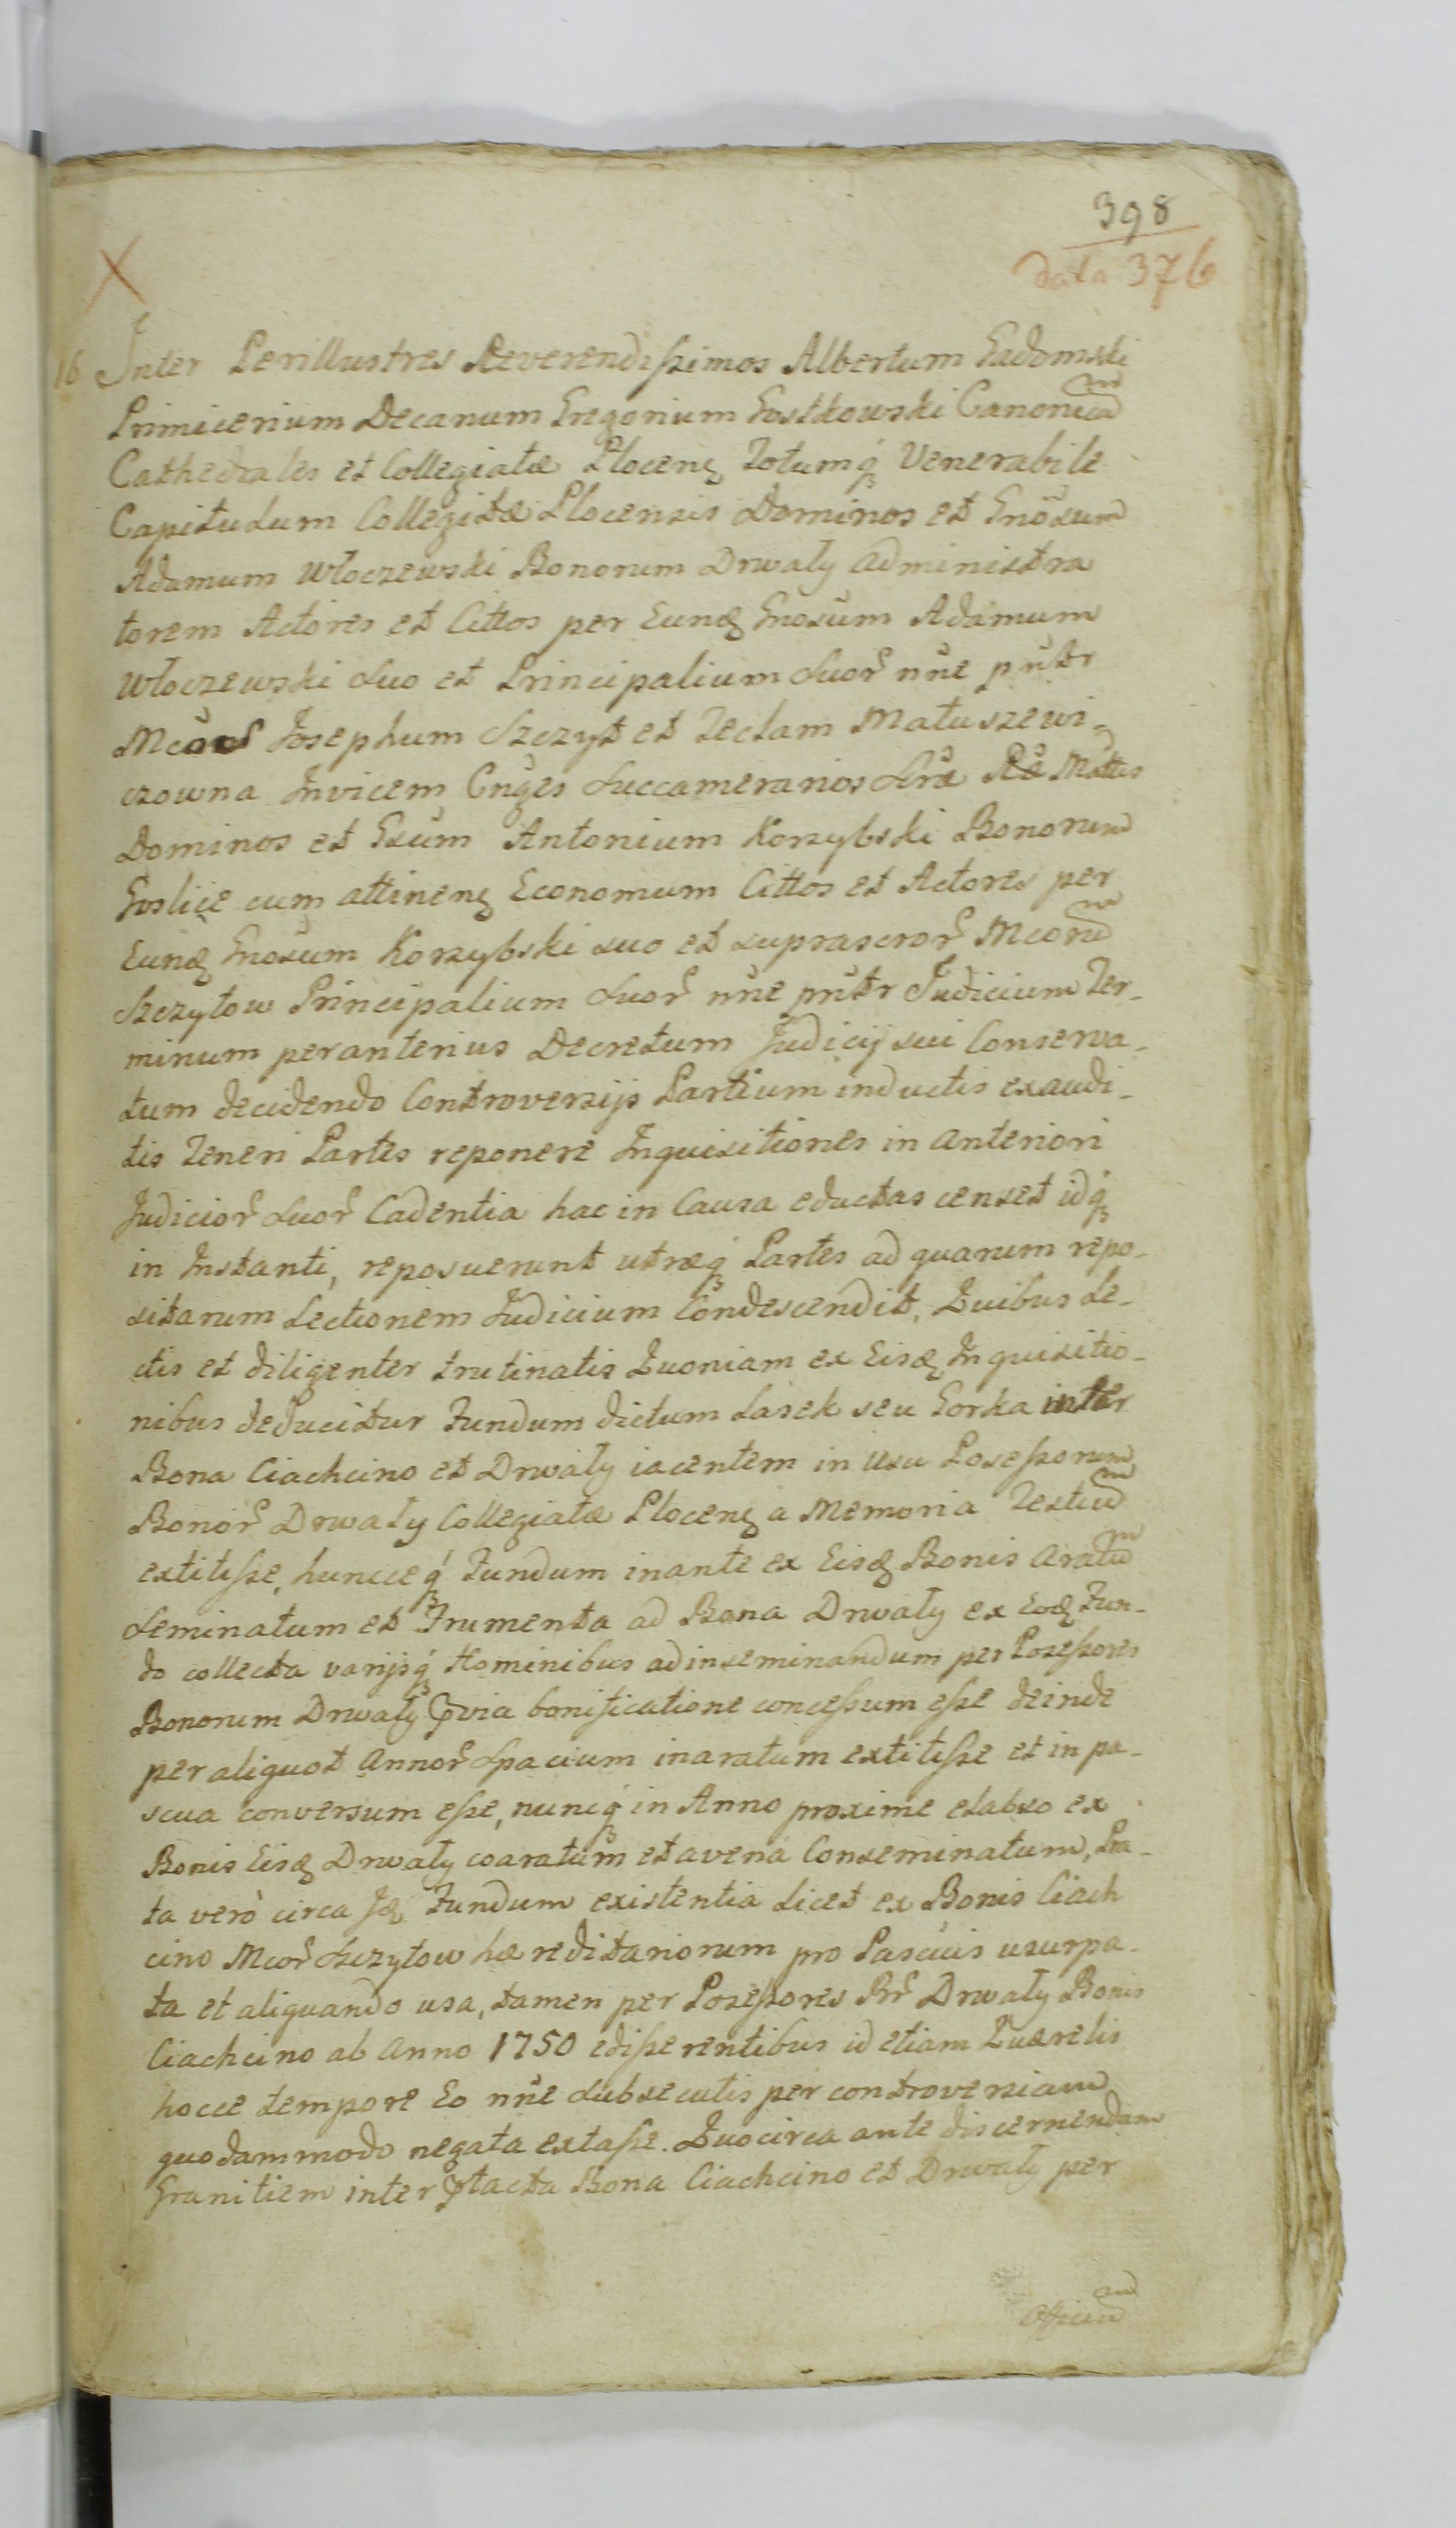 398
data 376
X
16 Inter Perillustres Reverendissimos Albertum Gadomski
Primicerium Decanum Gregorium Gostkowski Canonicum
Cathedrales et Collegiatæ Plocenę Totumq́ꝫ Venerabile
Capitulum Collegitæ Plocensis Dominos et Gnōsum
Adamum Włoczewski Bonorum Drwały administra
torem Actores et Cittos per Eundę Gnosum Adamum
Włoczewski Suo et Principalium Suor̃ nñe pñtr
Mcos Josephum Szczyt et Teclam Matuszewi-
czowna Invicem Cnges Succamerarios Sræ Ræ Mattis
Dominos et Gsum Antonium Korzybski Bonorum
Goslice cum attinenę Economum Cittos et Actores per
Eundę Gnosum Korzybski suo et suprascror̃ Mcorum
Szczytow Principalium Suor̃ nñe pñtr Judicium Ter-
minum per anterius Decretum Judicij sui Conserva-
tum decidendo Controversijs Partium inductis exaudi-
tis Teneri Partes reponere Inquisitiones in anteriori
Judicior̃ Suor̃ Cadentia hac in Causa eductas censet idq́ꝫ
in Instanti, reposuerunt utræq́ꝫ Partes ad quarum repo-
sitarum Lectionem Judicium Condescendit, Quibus Le-
ctis et diligenter trutinatis Quoniam ex Eisdę Inquisitio-
nibus deducitur Fundum dictum Lasek seu Gorka inter
Bona Ciachcino et Drwały iacentem in Usu Possessorum
Bonor̃ Drwały Collegiatæ Plocenę a Memoria Testium
extitisse, huncceq́ꝫ Fundum inante ex Eisdę Bonis aratum
Seminatum et Frumenta ad Bona Drwały ex Eodę Fun-
do collecta varijsq́ꝫ Hominibus ad inseminandum per Posessores
Bonorum Drwały prvia bonificatione concessum esse deinde
per aliquot Annor̃ Spacium inaratum extitisse et in pa-
scua conversum esse, nuncq́ꝫ in Anno proxime elabso ex
Bonis Eisdę Drwały coaratum et avena Conseminatum, Pra-
ta verò circa Jdę Fundum existentia Licet ex Bonis Ciach
cino Mcor̃ Szczytow hæreditariorum pro Pascuis usurpa-
ta et aliquando usa, tamen per Posessores Br̃ Drwały Bonis
Ciachcino ab Anno 1750 edisserentibus id etiam Quærelis
hocce tempore Eo nñe Subsecutis per controversiam
quodammodo negata extasse. Quocirca ante discernendam
Granitiem inter prtacta Bona Ciachcino et Drwały per
Officium